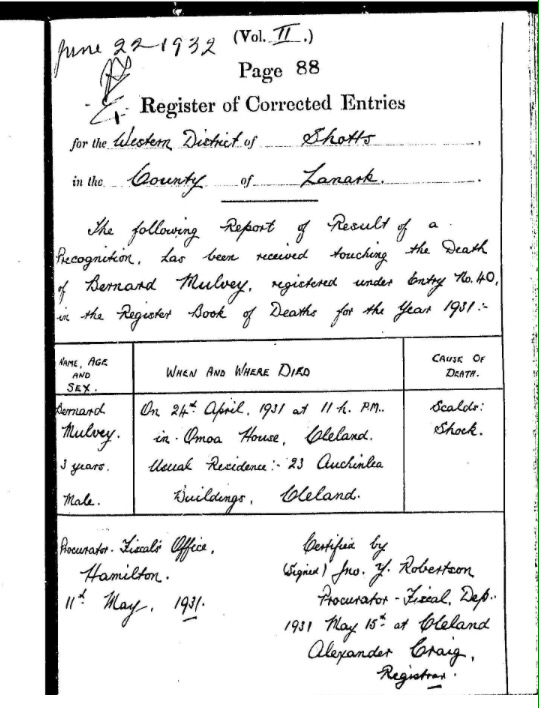 June 22 1932
(Vol. II.)
Page 88
Register of Corrected Entries
for the Western District of Shotts,
in the County of Lanark.
The following Report of Result of a
Precognition, has been received touching the Death
of Bernard Mulvey, registered under Entry No. 40,
in the Register Book of Deaths for the Year 1931:-
NAME, AGE
AND
SEX.
WHEN AND WHERE DIED
CAUSE OF
DEATH.
Bernard
Mulvey.
3 years.
Male.
On 24th April, 1931 at 11 h. P.M.
in Omoa House, Cleland.
Usual Residence:- 23 Auchinlea
Buildings, Cleland.
Scalds:
Shock.
Procurator-Fiscal's Office,
Hamilton.
11th May, 1931.
Certified by
(Signed) Jno. Y. Robertson
Procurator-Fiscal, Dep..
1931 May 15th at Cleland
Alexander Craig,
Registrar.